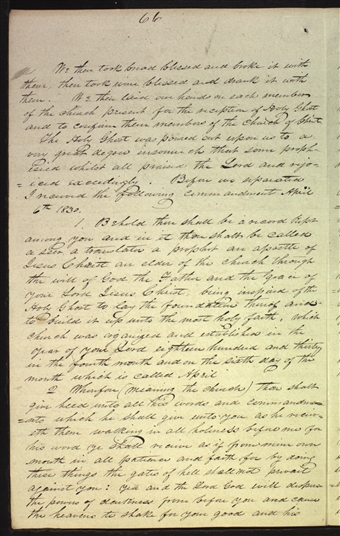 66
We then took bread blessed and broke it with
them, then took wine blessed and drank it with
them. We then laid our hands on each member
of the church present for the reception of Holy Ghost
and to confirm them members of the Church of Christ.
The Holy Ghost was poured out upon us to a
very great degree insomuch that some proph-
esied whilst all praised the Lord and rejoi-
=ced exceedingly. Before we separated
I received the following commandment. April
6th 1830.
1. Behold there shall be a record kept
among you and in it thou shalt be called
a seer a translator a prophet an apostle of
Jesus Christ an elder of the church through
the will of God the Father and the grace of
your Lord Jesus Christ, being inspired of the
Holy Ghost to lay the foundation thereof and
to build it up unto the most holy faith, which
church was organized and established in the
year of your Lord eighteen hundred and thirty
in the fourth month and on the sixth day of the
month which is called April
2 Wherefore (meaning the church) thou shalt
give heed unto all his words and commandme-
=nts which he shall give unto you as he receiv-
eth them walking in all holiness before me for
his word ye shall receive as if from mine own
mouth in all patience and faith for by doing
these things the gates of hell shall not prevail
against you: yea and the Lord God will disperse
the powers of darkness from before you and cause
the heavens to shake for your good and his